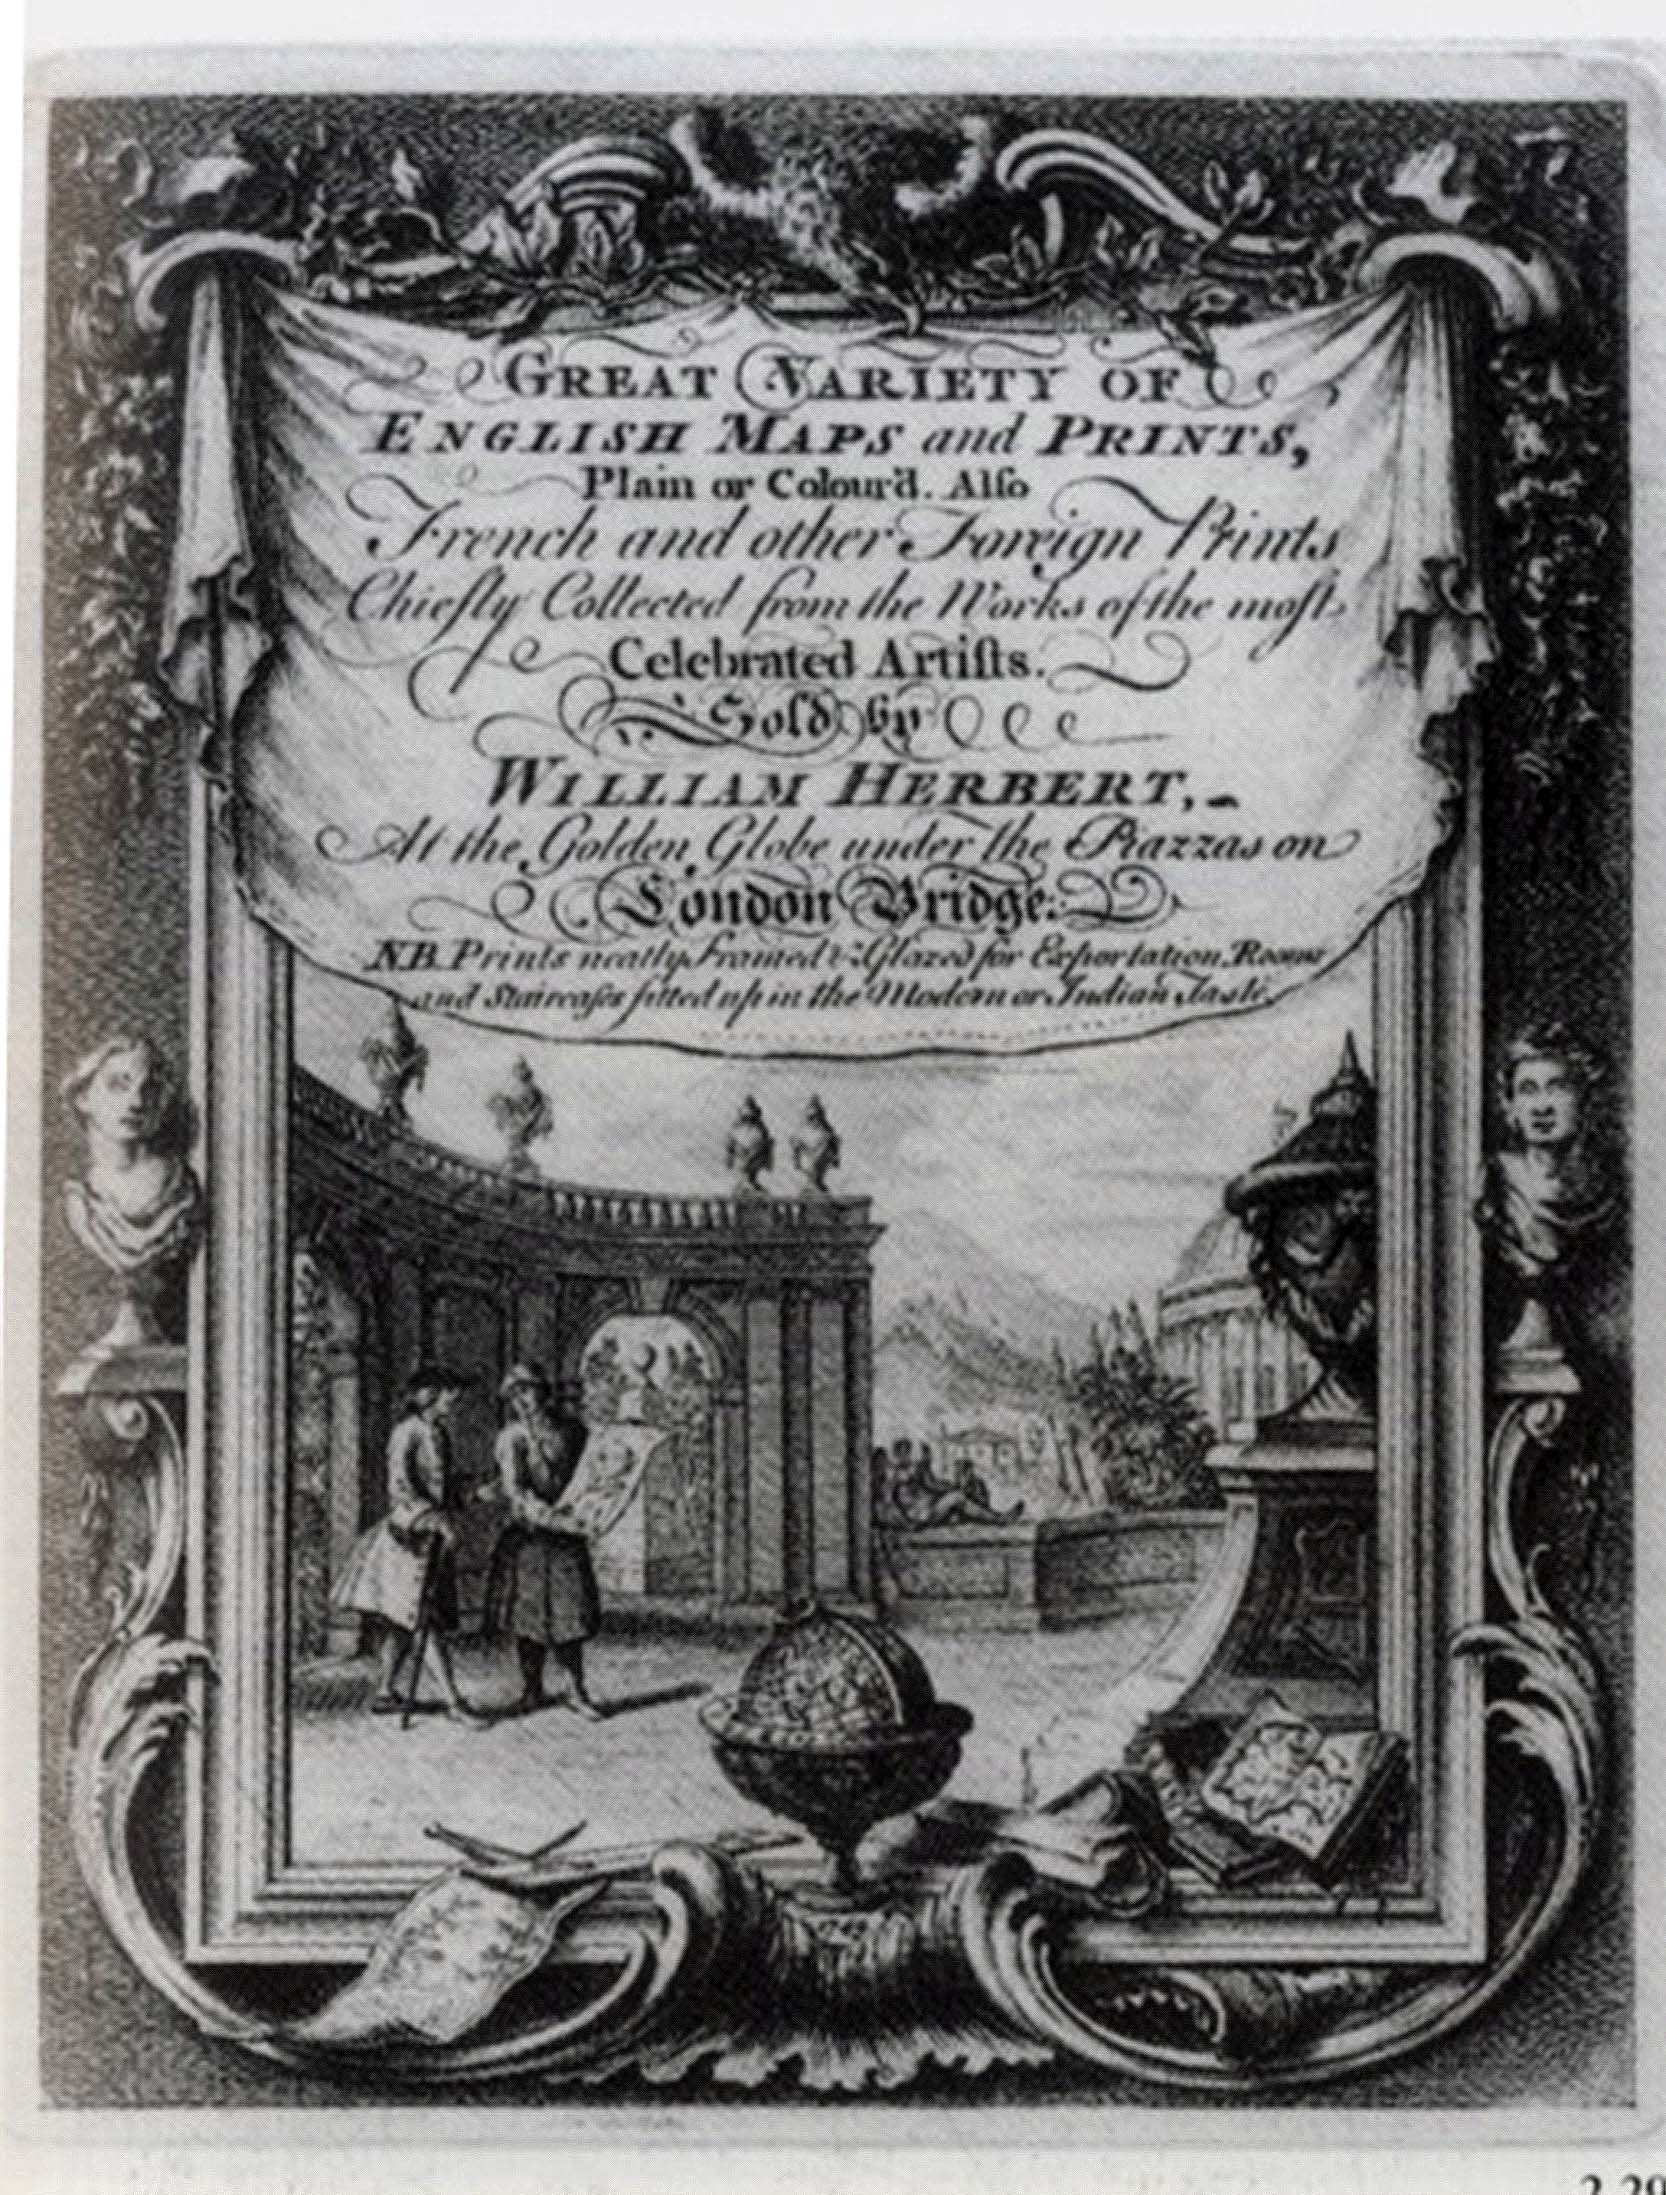 GREAT VARIETY OF
ENGLISH MAPS and PRINTS,
Plain or Colour'd. Alſo
French and other Foreign Prints
Chiefly Collected from the Works of the moſt
Celebrated Artiſts.
Sold by
WILLIAM HERBERT,
At the Golden Globe under the Piazzas on
London Bridge.
NB. Prints neatly Framed & Glazed for Exportation. Rooms
and Staircaſes fitted up in the Modern or Indian Taste.
1749
2.29